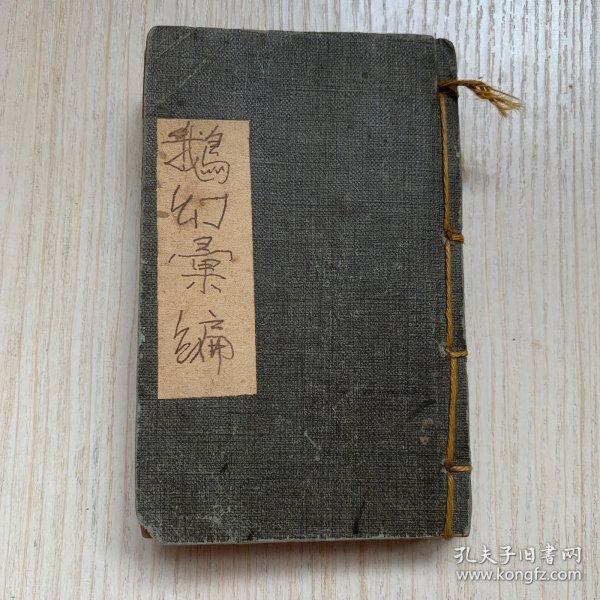 鵝幻彙編
孔夫子旧書网
www.kongfz.com